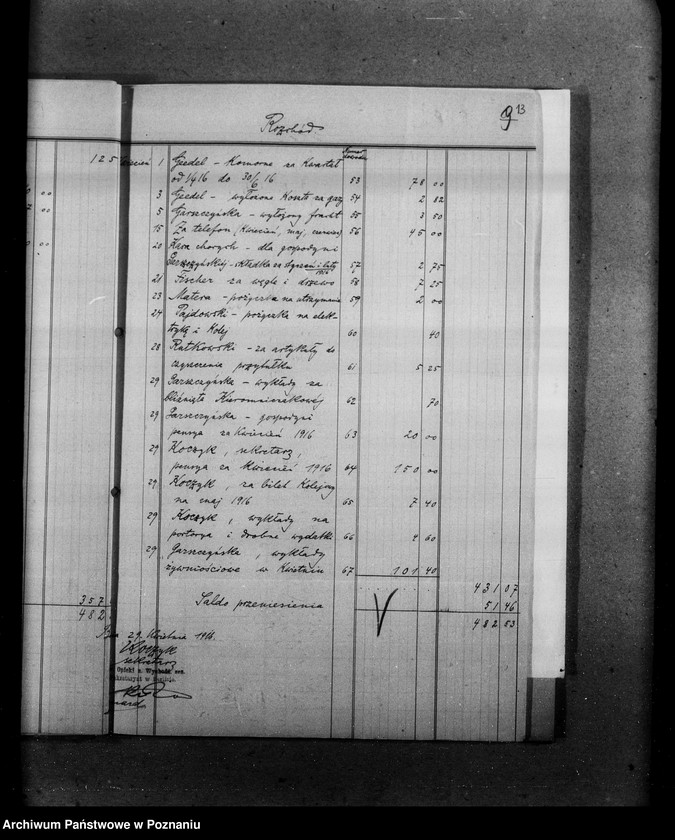 9 13
Rozchód
125 1 Gredel - Komorne za Kwartał
od 1/4 16 do 30/6 16 53 78 00
3 Gredel - wyłożone Koszta za gaz 54 2 82
5 Garszczyńska - wyłożony fracht 55 3 50
15 Za telefon (Kwiecień, maj, czerwiec) 56 45 00
20 Kasa chorych - dla gospodyni
Garszczyńskiej - składka za styczeń i luty 1916 57 2 75
21 Fischer za węgle i drzewo 58 7 25
23 Matera - pożyczka na utrzymanie 59 2 00
24 Pajdowski - pożyczka na elek-
trykę i Kolej 60 40
28 Rutkowski - za artykuły do
czyszczenia przytułku 61 5 25
29 Garszczyńska - wykłady za
62 70
29 Garszczyńska - gospodyni
pensya za Kwiecień 1916 63 20 00
29 Koczyk, sekretarz,
pensya za Kwiecień 1916 64 150 00
29 Koczyk, za bilet Kolejowy
na maj 1916 65 7 40
29 Koczyk, wykłady na
portorya i drobne wydatki 66 4 60
29 Garszczyńska, wykłady
żywnościowe w Kwietniu 67 101 40
431 07
357 Saldo przeniesienia 51 46
482 482 53
29. Kwietnia 1916.
Koczyk
sekretarz
Archiwum Państwowe w Poznaniu